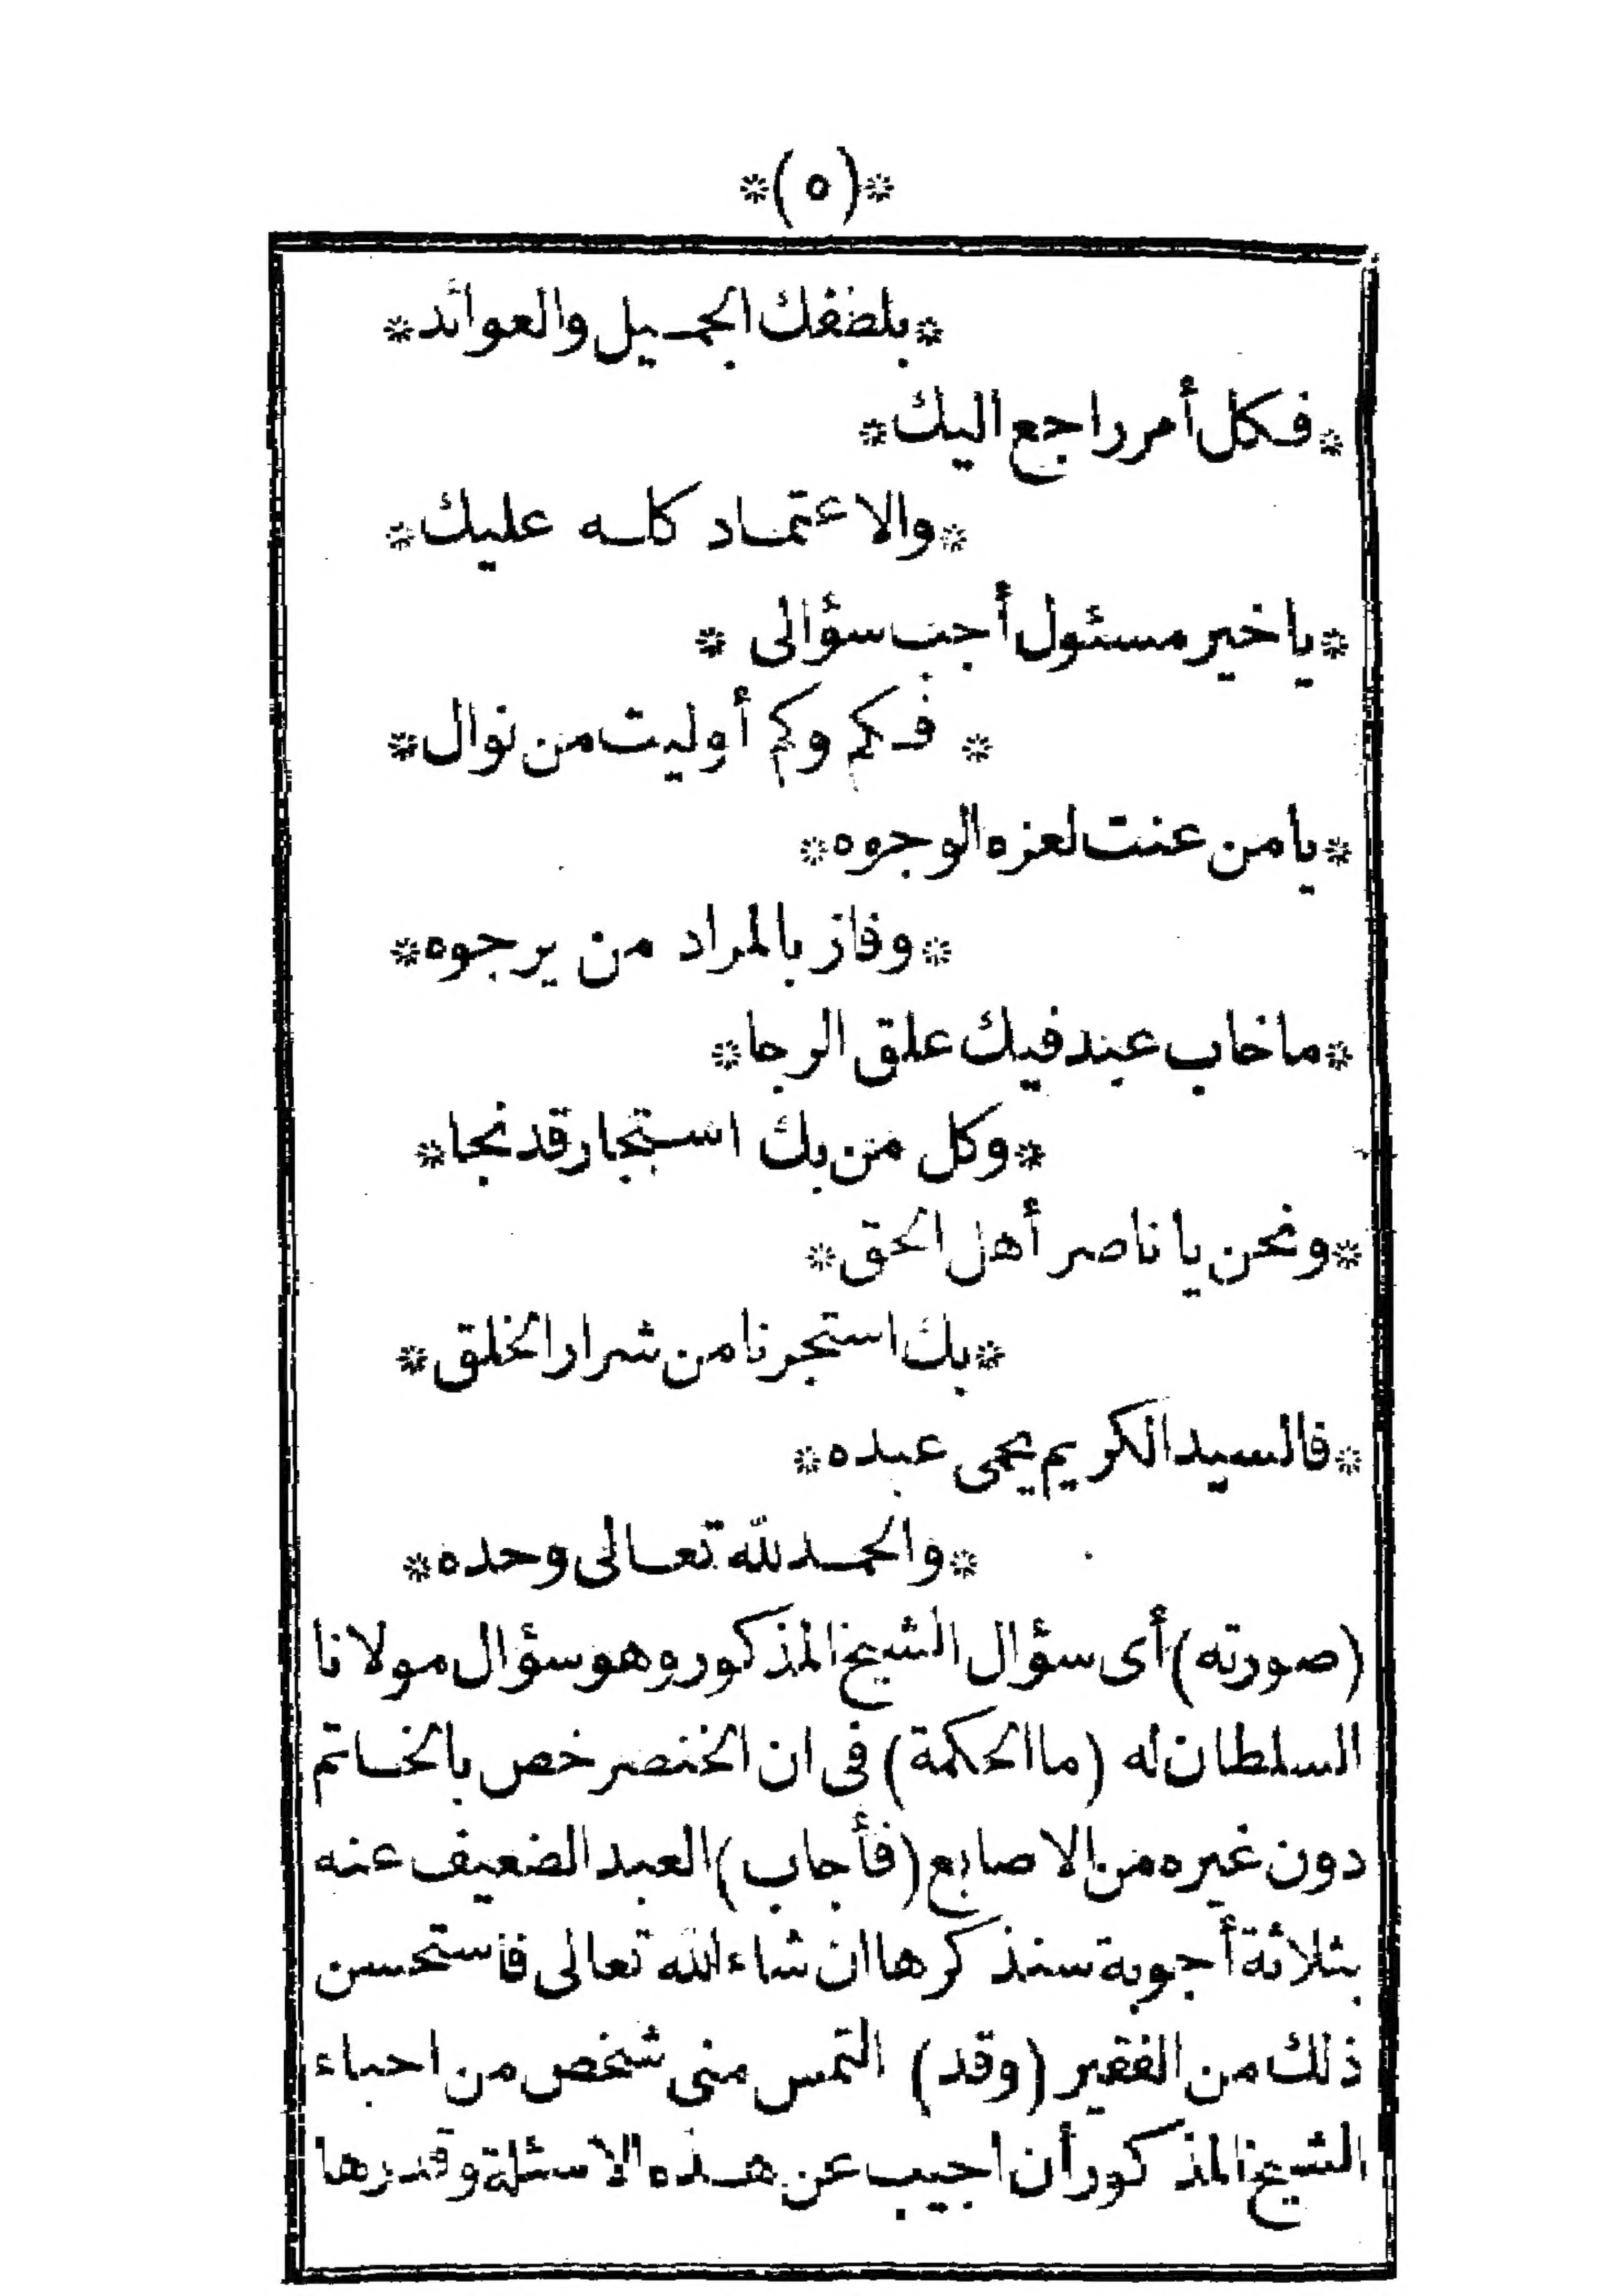 *(٥)*
*بلطفك الجميل والعوائد*
*فكل أمر راجع اليك*
*والاعتماد كله عليك*
*يا خير مسئول أجب سؤالى *
* فكم وكم أوليت من نوال*
*يا من عنت لعزه الوجوه*
*وفاز بالمراد من يرجوه*
*ما خاب عبد فيك علق الرجا*
*وكل من بك استجار قد نجا*
*ونحن يا ناصر أهل الحق*
*بك استجرنا من شرار الخلق*
*فالسيد الكريم يحمى عبده*
*والحمد لله تعالى وحده*
(صورته) أى سؤال الشيخ المذكور وهو سؤال مولانا
السلطان له (ما الحكمة) فى ان الخنصر خص بالخاتم
دون غيره من الاصابع (فأجاب) العبد الضعيف عنه
بثلاثة أجوبة سنذكرها ان شاء الله تعالى فاستحسن
ذلك من الفقير (وقد) التمس منى شخص من احباء
الشيخ المذكور أن اجيب عن هذه الاسئلة وقدرها